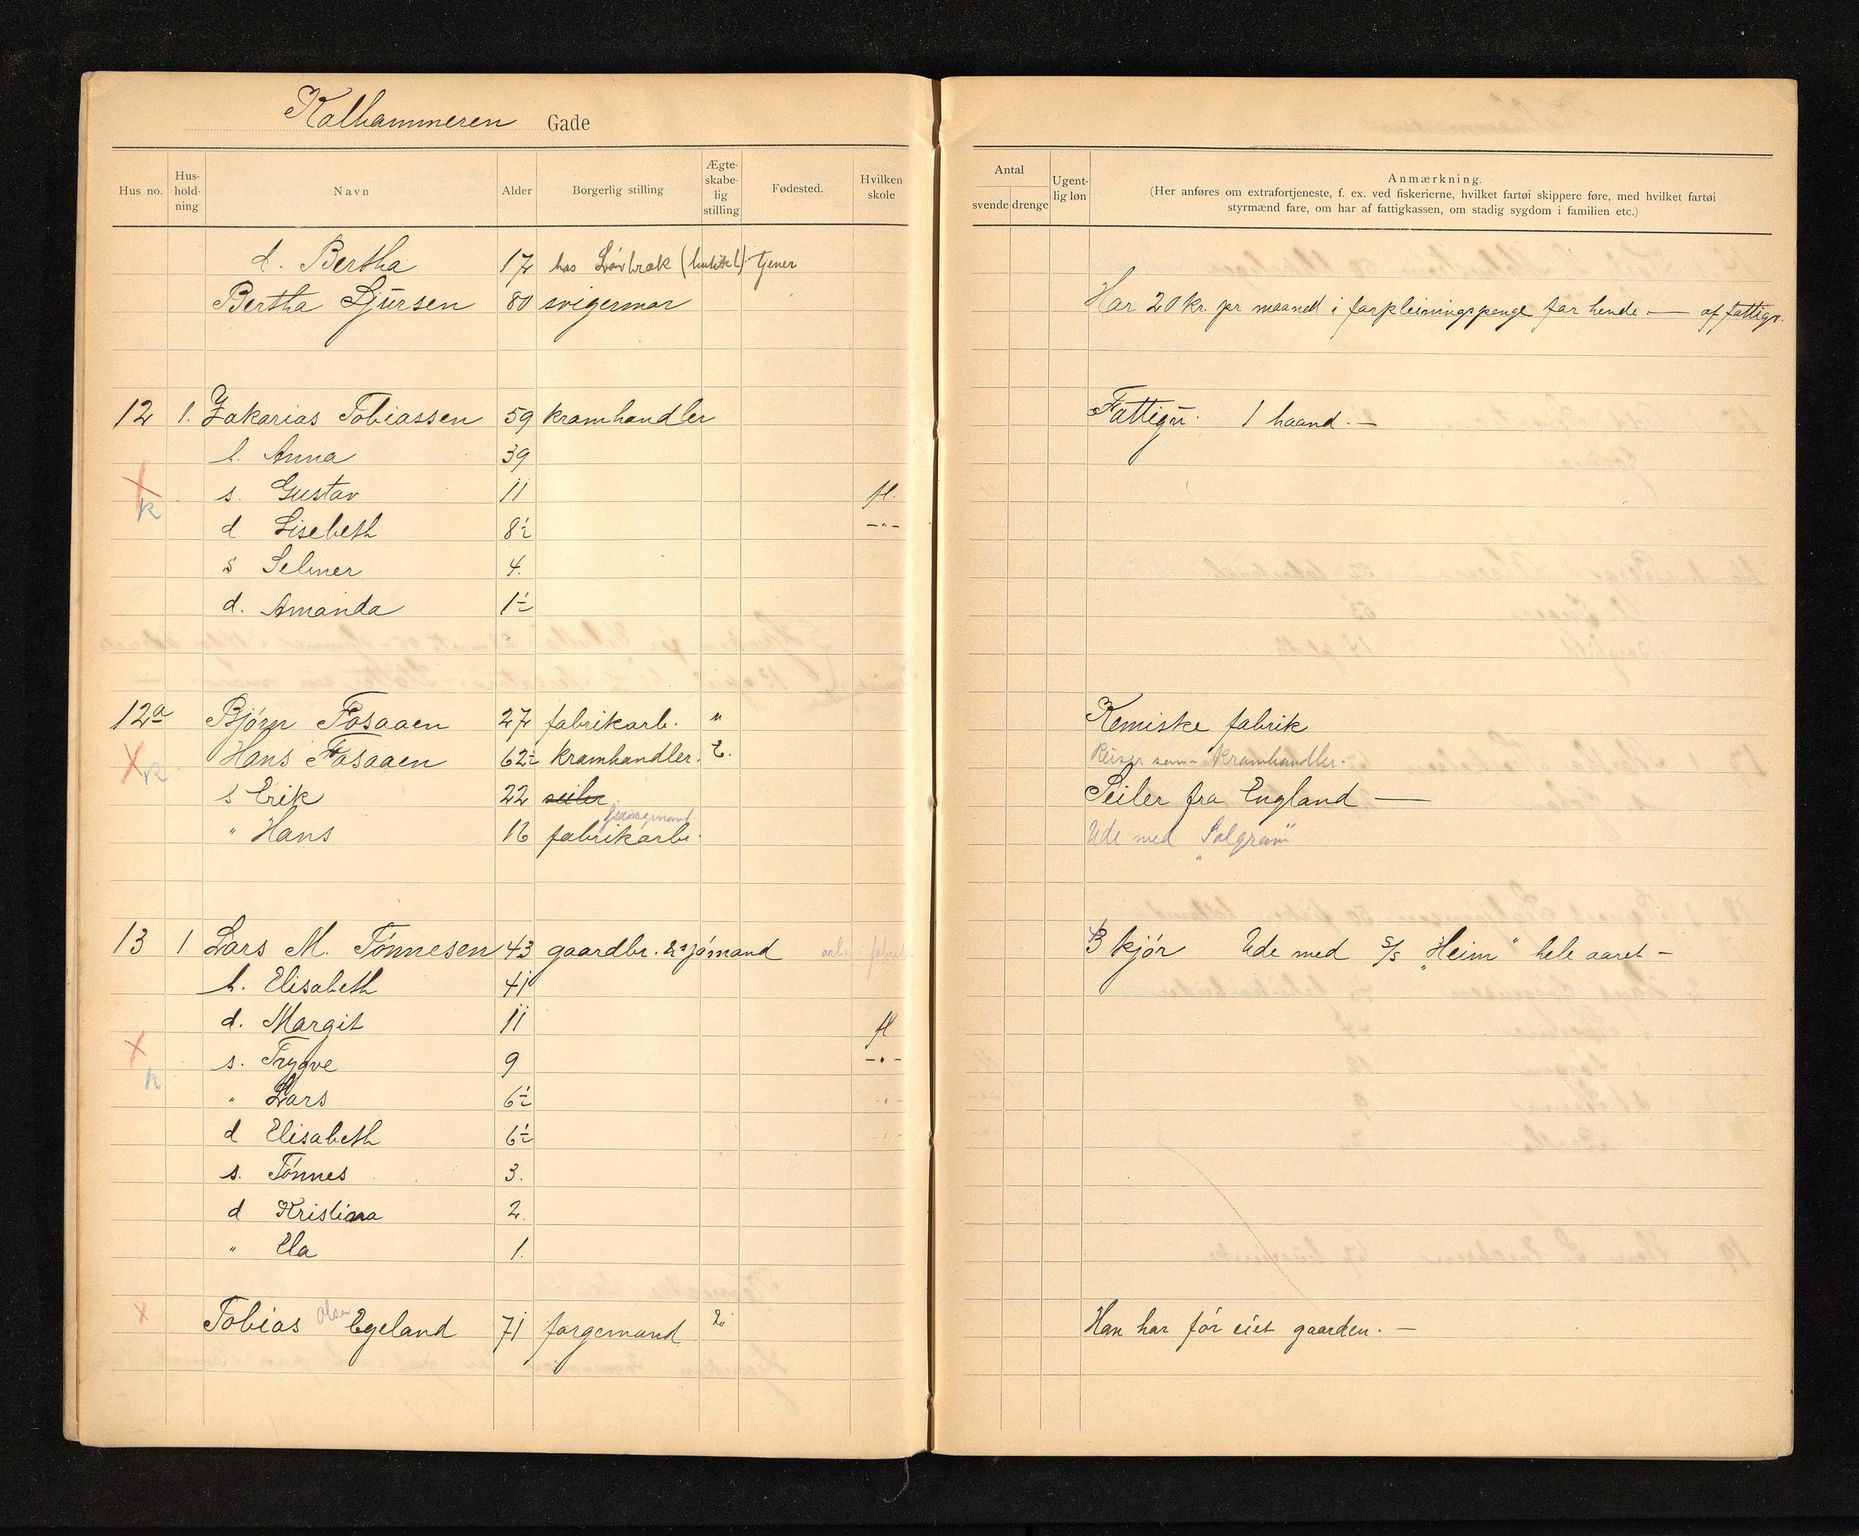 Kalhammeren Gade
Hus no. Hus-hold-ning Navn Alder Borgerlig stilling Ægte-skabe-lig stilling Fødested. Hvilken skole
Antal svende drenge Ugent-lig løn Anmærkning.
(Her anføres om extrafortjeneste, f. ex. ved fiskerierne, hvilket fartøi skippere føre, med hvilket fartøi
styrmænd fare, om har af fattigkassen, om stadig sygdom i familien etc.)
d. Bertha 17 hos Løvbrak tjener
Bertha Sjursen 80 svigermor Har 20 kr. pr maaned i forpleiningspenge for hende — af fattigv.
12 1. Zakarias Tobiassen 59 kramhandler Fattigv. 1 haand. —
h. Anna 39
s. Gustav 11 fl.
d Lisebeth 8½ -"-
s Selmer 4.
d. Amanda 1½
12a Bjørn Fosaaen 27 fabrikarb. u Kemiske fabrik
Hans Fosaaen 62½ kramhandler. E. Reiser som kramhandler.
s Erik 22 seiler Seiler fra England —
" Hans 16 fabrikarb. Ude med "Solgram"
13 1. Lars M. Tønnesen 43 gaardbr. & sjømand 3 kjør Ude med S/S "Heim" hele aaret —
h. Elisabeth 41
d. Margit 11 fl
s. Trygve 9 -"-
" Lars 6½
d Elisabeth 6½
s. Tønnes 3.
d Kristiana 2.
" Ela 1.
Tobias Olsen Egeland 71 forgemand E. Han har før eiet gaarden. —
X
k
X
k
X
k
X